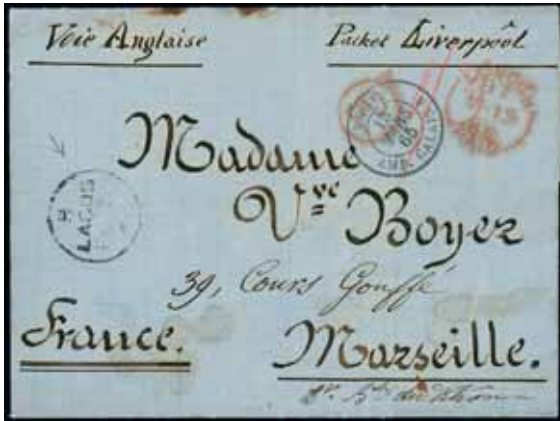 Voie Anglaise Packet Liverpool
LONDON
LAGOS
Madame
Vve Boyer
39, Cours Gouffé
France. Marseille.